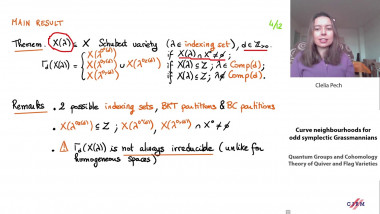 MAIN RESULT
4/12
Theorem. X(λ) ⊆ X Schubert variety (λ ∈ indexing set), d ∈ Z>0.
if X(λ) ∩ X° ≠ ∅
Γd(X(λ)) =
if X(λ) ⊆ Z ; λ ∈ Comp(d).
if X(λ) ⊆ Z ; λ ∉ Comp(d).
Remarks. • 2 possible indexing sets, BKT partitions & BC partitions
∩ X° ≠ ∅
• ⚠ Γd(X(λ)) is not always irreducible (unlike for
homogeneous spaces)
Clelia Pech
Curve neighbourhoods for
odd symplectic Grassmannians
Quantum Groups and Cohomology
Theory of Quiver and Flag Varieties
CIRM